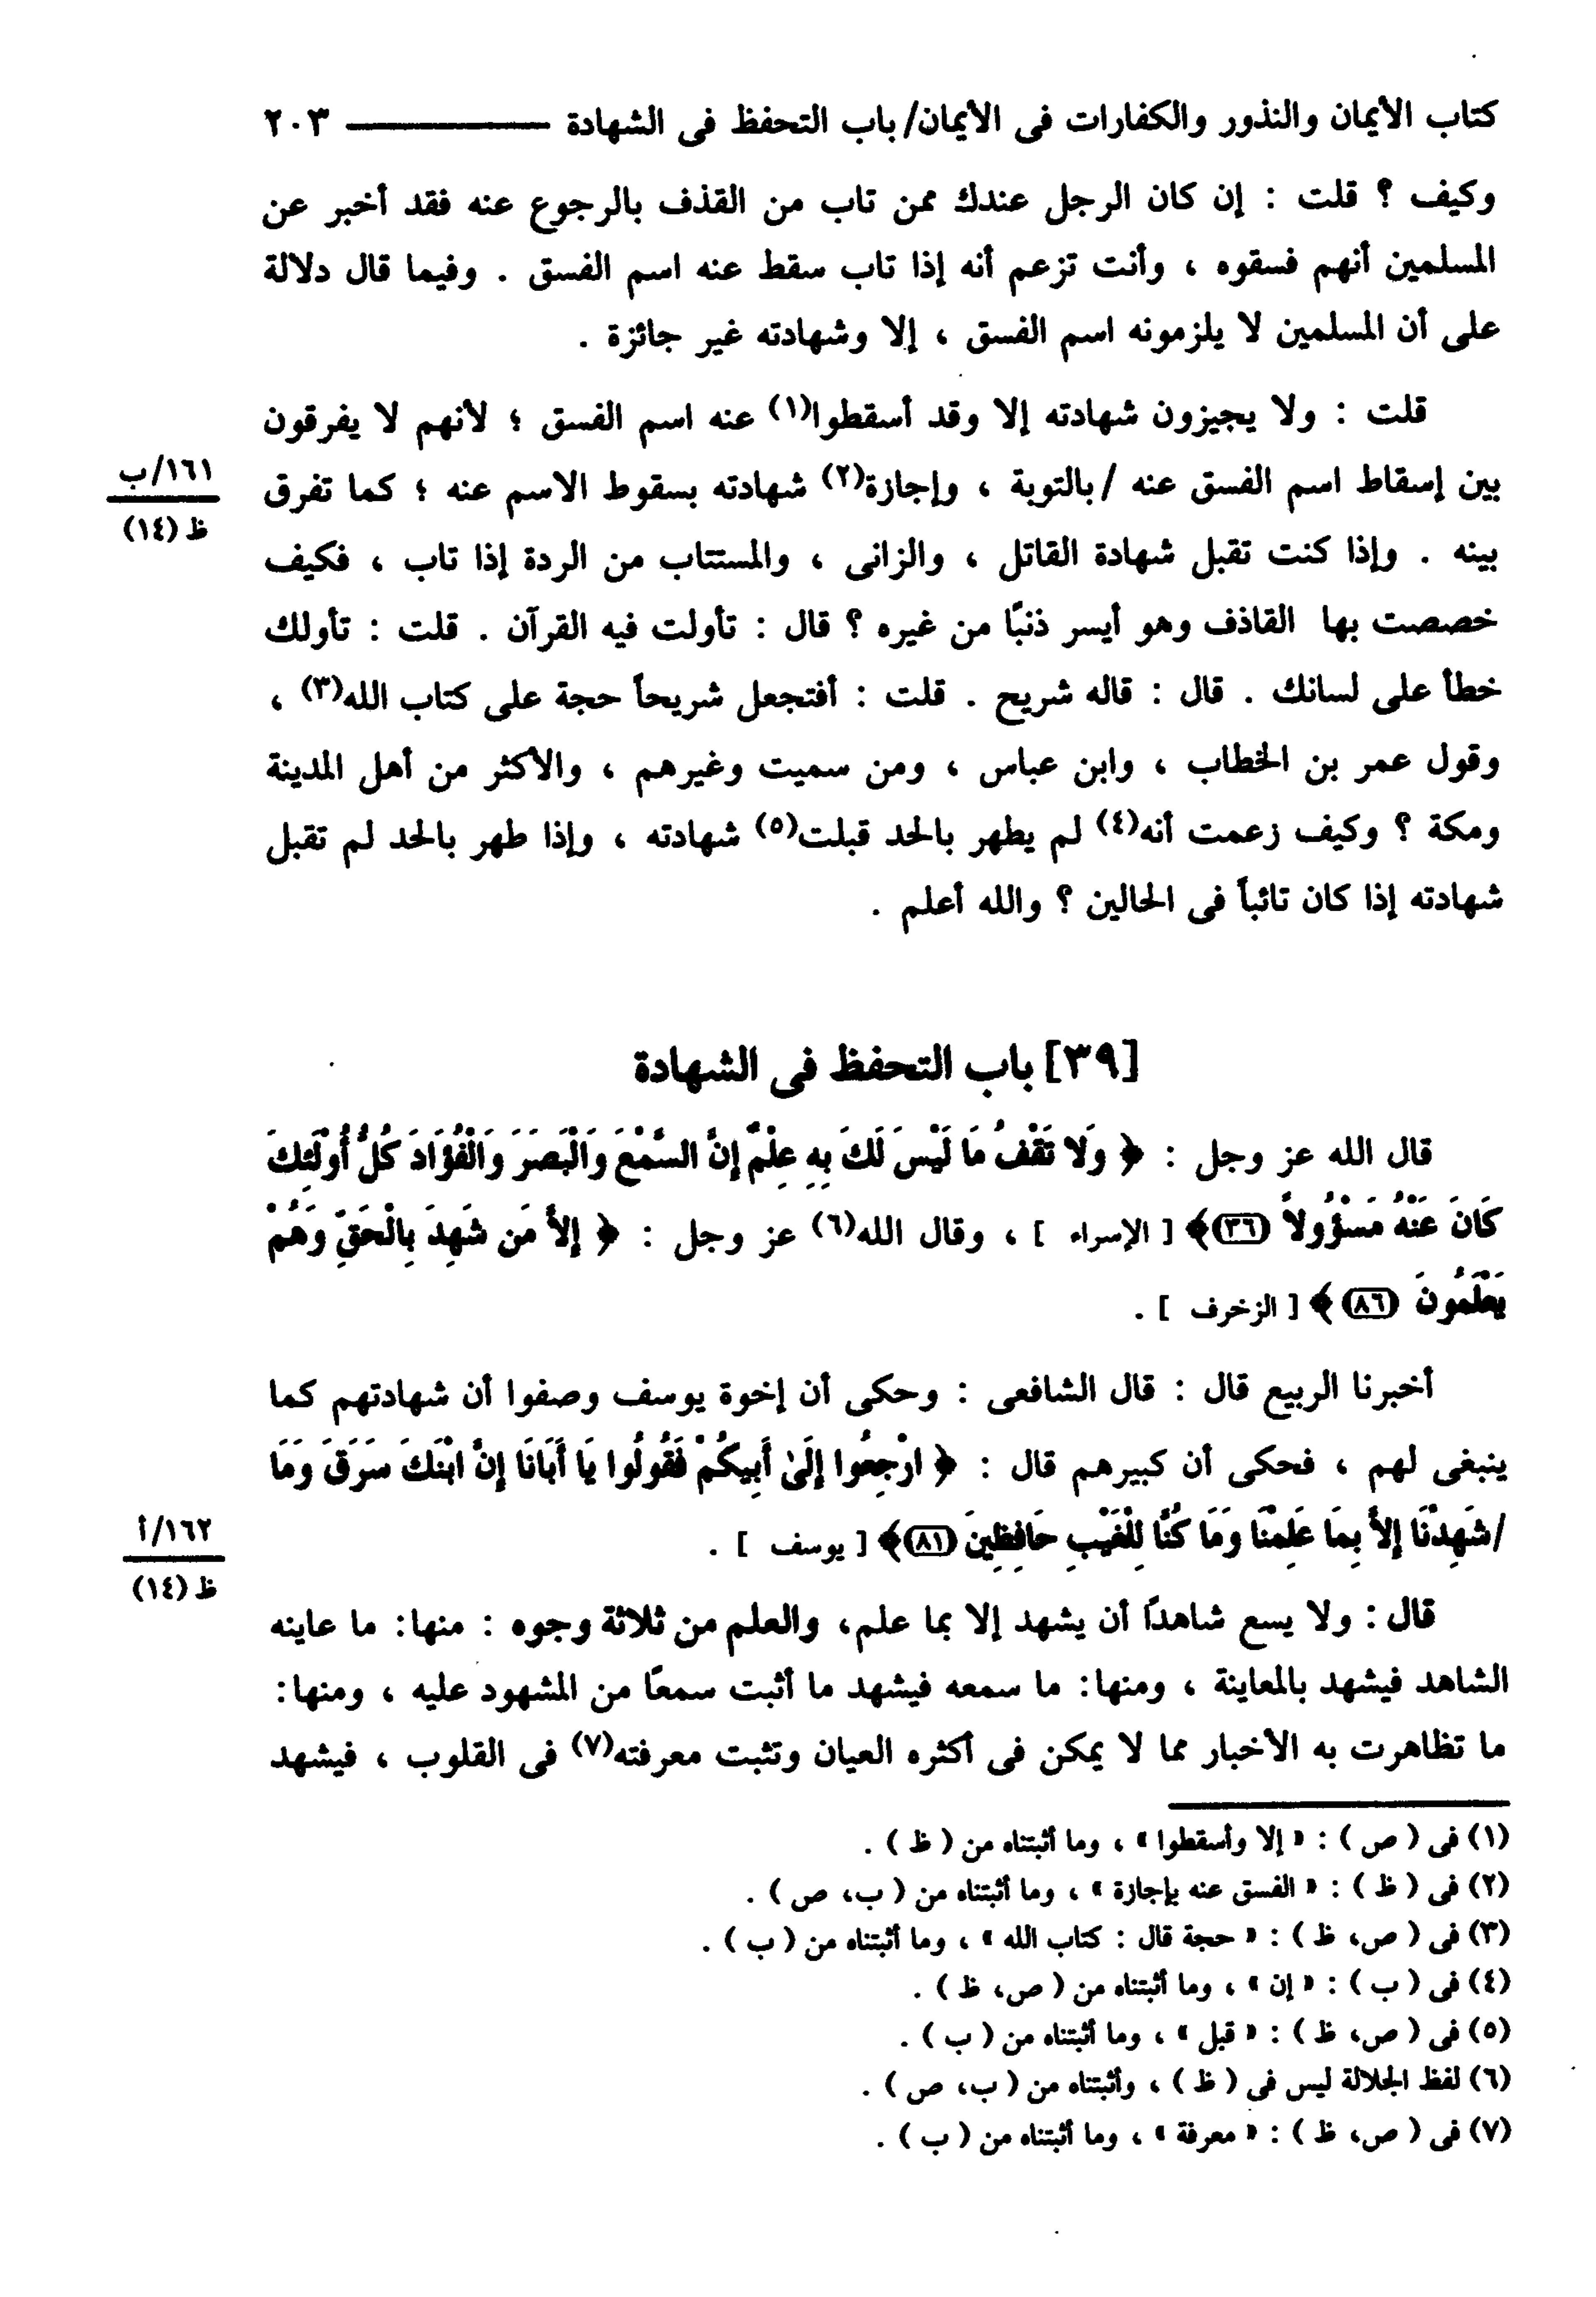 كتاب الأيمان والنذور والكفارات فى الأيمان/ باب التحفظ فى الشهادة ــــــــــــ ٢٠٣
وكيف ؟ قلت : إن كان الرجل عندك ممن تاب من القذف بالرجوع عنه فقد أخبر عن
المسلمين أنهم فسقوه ، وأنت تزعم أنه إذا تاب سقط عنه اسم الفسق . وفيما قال دلالة
على أن المسلمين لا يلزمونه اسم الفسق ، إلا وشهادته غير جائزة .
قلت : ولا يجيزون شهادته إلا وقد أسقطوا(١) عنه اسم الفسق ؛ لأنهم لا يفرقون
بين إسقاط اسم الفسق عنه /بالتوبة ، وإجازة(٢) شهادته بسقوط الاسم عنه ؛ كما تفرق
١٦١/ب
ظ (١٤)
بينه . وإذا كنت تقبل شهادة القاتل ، والزانى ، والمستتاب من الردة إذا تاب ، فكيف
خصصت بها القاذف وهو أيسر ذنبًا من غيره ؟ قال : تأولت فيه القرآن . قلت : تأولك
خطأ على لسانك . قال : قاله شريح . قلت : أفتجعل شريحاً حجة على كتاب الله(٣) ،
وقول عمر بن الخطاب ، وابن عباس ، ومن سميت وغيرهم ، والأكثر من أهل المدينة
ومكة ؟ وكيف زعمت أنه(٤) لم يطهر بالحد قبلت(٥) شهادته ، وإذا طهر بالحد لم تقبل
شهادته إذا كان تائباً فى الحالين ؟ والله أعلم .
[٣٩] باب التحفظ فى الشهادة
قال الله عز وجل : ﴿ وَلا تَقْفُ مَا لَيْسَ لَكَ بِهِ عِلْمٌ إِنَّ السَّمْعَ وَالْبَصَرَ وَالْفُؤَادَ كُلُّ أُوْلَئِكَ
كَانَ عَنْهُ مَسْؤُولاً (٣٦)﴾ [ الإسراء ] ، وقال الله(٦) عز وجل : ﴿ إِلاَّ مَن شَهِدَ بِالْحَقِّ وَهُمْ
يَعْلَمُونَ (٨٦) ﴾ [ الزخرف ] .
أخبرنا الربيع قال : قال الشافعى : وحكى أن إخوة يوسف وصفوا أن شهادتهم كما
ينبغى لهم ، فحكى أن كبيرهم قال : ﴿ ارْجِعُوا إِلَىٰ أَبِيكُمْ فَقُولُوا يَا أَبَانَا إِنَّ ابْنَكَ سَرَقَ وَمَا
/شَهِدْنَا إِلاَّ بِمَا عَلِمْنَا وَمَا كُنَّا لِلْغَيْبِ حَافِظِينَ (٨١)﴾ [ يوسف ] .
١٦٢/أ
ظ (١٤)
قال : ولا يسع شاهدًا أن يشهد إلا بما علم، والعلم من ثلاثة وجوه : منها: ما عاينه
الشاهد فيشهد بالمعاينة ، ومنها: ما سمعه فيشهد ما أثبت سمعًا من المشهود عليه ، ومنها:
ما تظاهرت به الأخبار مما لا يمكن فى أكثره العيان وتثبت معرفته(٧) فى القلوب ، فيشهد
(١) فى ( ص ) : « إلا وأسقطوا » ، وما أثبتناه من ( ظ ) .
(٢) فى ( ظ ) : « الفسق عنه بإجازة » ، وما أثبتناه من ( ب، ص ) .
(٣) فى ( ص، ظ ) : « حجة قال : كتاب الله » ، وما أثبتناه من ( ب ) .
(٤) فى ( ب ) : « إن » ، وما أثبتناه من ( ص، ظ ) .
(٥) فى ( ص، ظ ) : « قبل » ، وما أثبتناه من ( ب ) .
(٦) لفظ الجلالة ليس فى ( ظ ) ، وأثبتناه من ( ب، ص ) .
(٧) فى ( ص، ظ ) : « معرفة » ، وما أثبتناه من ( ب ) .